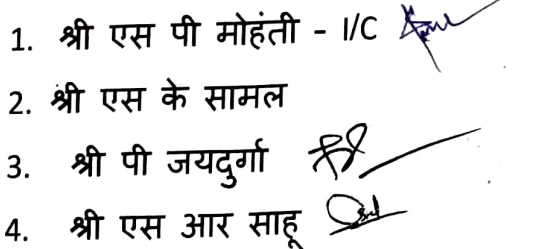 1. श्री एस पी मोहंती - I/C
2. श्री एस के सामल
3. श्री पी जयदुर्गा
4. श्री एस आर साहू